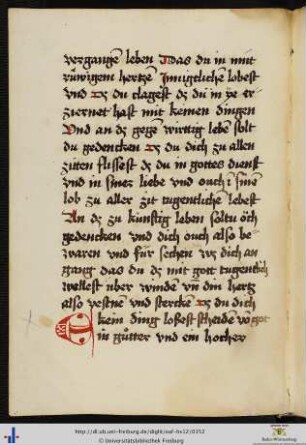 vergangē leben Das du in mit
rüwigem hertzē Inniglichē lobest
vnd dz du clagest dz du in ye er
zürnet hast mit keinen dingen
Vnd an dz gegē wirtig lebē solt
du gedencken dz du dich zu allen
ziten flissest dz du in gottes dienst
vnd in siner liebe vnd ouch ī sinē
lob zu aller zit tugentlichē lebest
An dz zu künftig leben soltu öch
gedencken vnd dich ouch also be
waren vnd für sechen wz dich an
gang das du dz mit gott tugentlich
wellest über winden vn̄ din hertz
also vestnē vnd stercken dz du dich
kein ding lossest scheidē vō got
in gütter vnd ein hocher
http://dl.ub.uni-freiburg.de/diglit/nuf-hs12/0352
© Universitätsbibliothek Freiburg
Baden-Württemberg